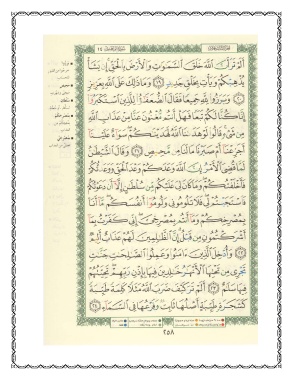 أَلَمْ تَرَ أَنَّ اللَّهَ خَلَقَ السَّمَٰوَٰتِ وَالْأَرْضَ بِالْحَقِّ إِن يَشَأْ
يُذْهِبْكُمْ وَيَأْتِ بِخَلْقٍ جَدِيدٍ ١٩ وَمَا ذَٰلِكَ عَلَى اللَّهِ بِعَزِيزٍ
٢٠ وَبَرَزُوا لِلَّهِ جَمِيعًا فَقَالَ الضُّعَفَٰٓؤُا لِلَّذِينَ اسْتَكْبَرُوٓا
إِنَّا كُنَّا لَكُمْ تَبَعًا فَهَلْ أَنتُم مُّغْنُونَ عَنَّا مِنْ عَذَابِ اللَّهِ
مِن شَىْءٍ قَالُوا لَوْ هَدَىٰنَا اللَّهُ لَهَدَيْنَٰكُمْ سَوَآءٌ عَلَيْنَآ
أَجَزِعْنَآ أَمْ صَبَرْنَا مَا لَنَا مِن مَّحِيصٍ ٢١ وَقَالَ الشَّيْطَٰنُ
لَمَّا قُضِىَ الْأَمْرُ إِنَّ اللَّهَ وَعَدَكُمْ وَعْدَ الْحَقِّ وَوَعَدتُّكُمْ
فَأَخْلَفْتُكُمْ وَمَا كَانَ لِىَ عَلَيْكُم مِّن سُلْطَٰنٍ إِلَّآ أَن دَعَوْتُكُمْ
فَاسْتَجَبْتُمْ لِى فَلَا تَلُومُونِى وَلُومُوٓا أَنفُسَكُم مَّآ أَنَا۠
بِمُصْرِخِكُمْ وَمَآ أَنتُم بِمُصْرِخِىَّ إِنِّى كَفَرْتُ بِمَآ
أَشْرَكْتُمُونِ مِن قَبْلُ إِنَّ الظَّٰلِمِينَ لَهُمْ عَذَابٌ أَلِيمٌ
٢٢ وَأُدْخِلَ الَّذِينَ ءَامَنُوا وَعَمِلُوا الصَّٰلِحَٰتِ جَنَّٰتٍ
تَجْرِى مِن تَحْتِهَا الْأَنْهَٰرُ خَٰلِدِينَ فِيهَا بِإِذْنِ رَبِّهِمْ تَحِيَّتُهُمْ
فِيهَا سَلَٰمٌ ٢٣ أَلَمْ تَرَ كَيْفَ ضَرَبَ اللَّهُ مَثَلًا كَلِمَةً طَيِّبَةً
كَشَجَرَةٍ طَيِّبَةٍ أَصْلُهَا ثَابِتٌ وَفَرْعُهَا فِى السَّمَآءِ ٢٤
٢٥٨